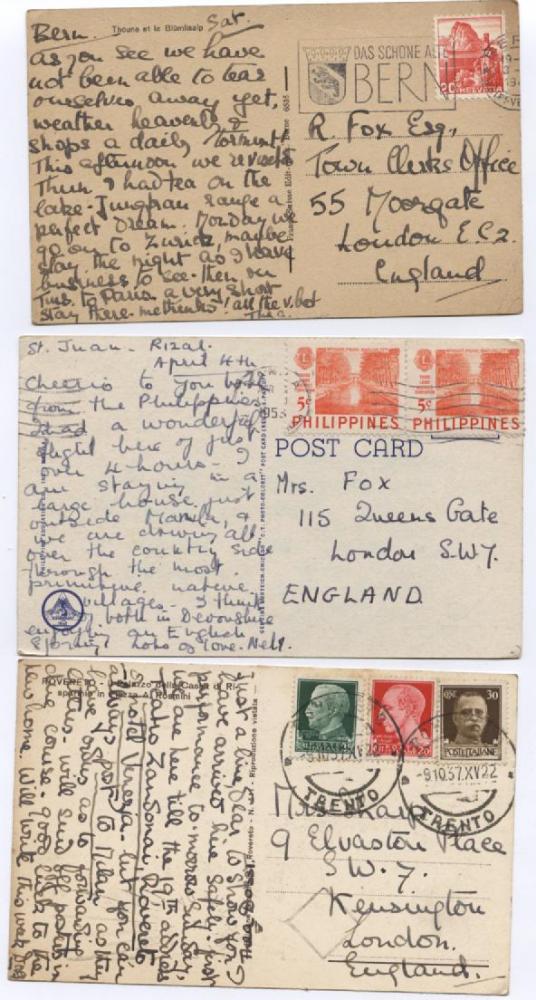 Bern. Thoune et le Blümlisalp Sat.
as you see we have
not been able to tear
ourselves away yet,
weather heavenly &
shops a daily torment!
This afternoon we
Thun & had tea on the
lake - Jungfrau range a
perfect Dream. Monday we
go on to Zurich, maybe
stay the night as I have
business to see - then on
Tues. to Paris a very short
stay there - methinks! all the v. best
DAS SCHÖNE
BERN
20 HELVETIA
R. Fox Esq.,
Town Clerks Office
55 Moorgate
London E.C.2.
England
St. Juan. Rizal.
April 4th
Cheerio to you both
from the Philippines
Had a wonderful
flight here of just
over 4-hours - I
am staying in a
large house just
outside Manila, &
we are driving all
over the country side
through the most
primitive native
villages - I think
of both in Devonshire
enjoying an English
Spring! Lots of love. Nell.
1953
5¢ 5¢
PHILIPPINES PHILIPPINES
POST CARD
Mrs. Fox
115 Queens Gate
London S.W.7.
ENGLAND
ROVERETO - Palazzo della Cassa di Ri-
sparmio in Piazza A. Rosmini
Just a line, Dear, to show you I
have arrived here safely. First
performance to-morrow Sunday,
we are here till the 19th address
Teatro Zandonai Rovereto
bristol Venezia - but you can
always post to Milan as they
have orders as to forwarding
letters, will send off parcel in
due course - good luck to the
new home. Will write this week
Rovereto - N. - Riproduzione vietata
30
POSTE ITALIANE
-9.10.37.XV 22 -9.10.37.XV 22
TRENTO TRENTO
Mrs Sharp
9 Elvaston Place
S.W.7.
Kensington
London.
England.